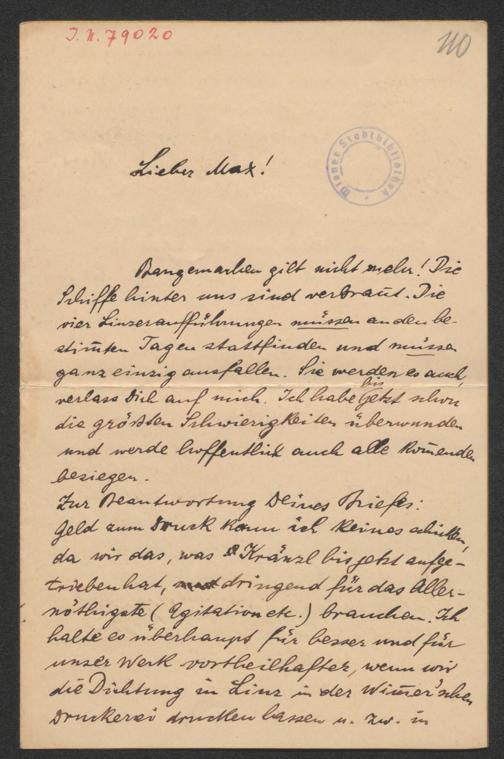 J.N. 79020
110
Wiener Stadtbibliothek
Lieber Max!
Bangemachen gilt nicht mehr! Die
Schiffe hinter uns sind verbrannt. Die
vier Linzeraufführungen müssen an den be-
stimten Tagen stattfinden und müssen
ganz einzig ausfallen. Sie werden es auch,
verlass Dich auf mich. Ich habe bis jetzt schon
die grössten Schwierigkeiten überwunden
und werde hoffentlich auch alle komenden
besiegen.
Zur Beantwortung Deines Briefes:
Geld zum Druck kann ich keines schicken,
da wir das, was Kränzl bis jetzt aufge-
trieben hat, dringend für das Aller-
nöthigste (Agitation etc.) brauchen. Ich
halte es überhaupt für besser und für
unser Werk vortheilhafter, wenn wir
die Dichtung in Linz in der Wimer'schen
Druckerei drucken lassen u. zw. in